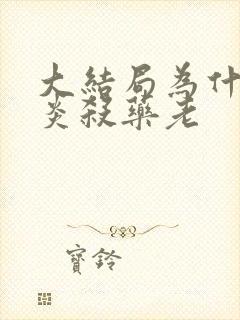 大結局為什
炎殺藥老
寶鈴